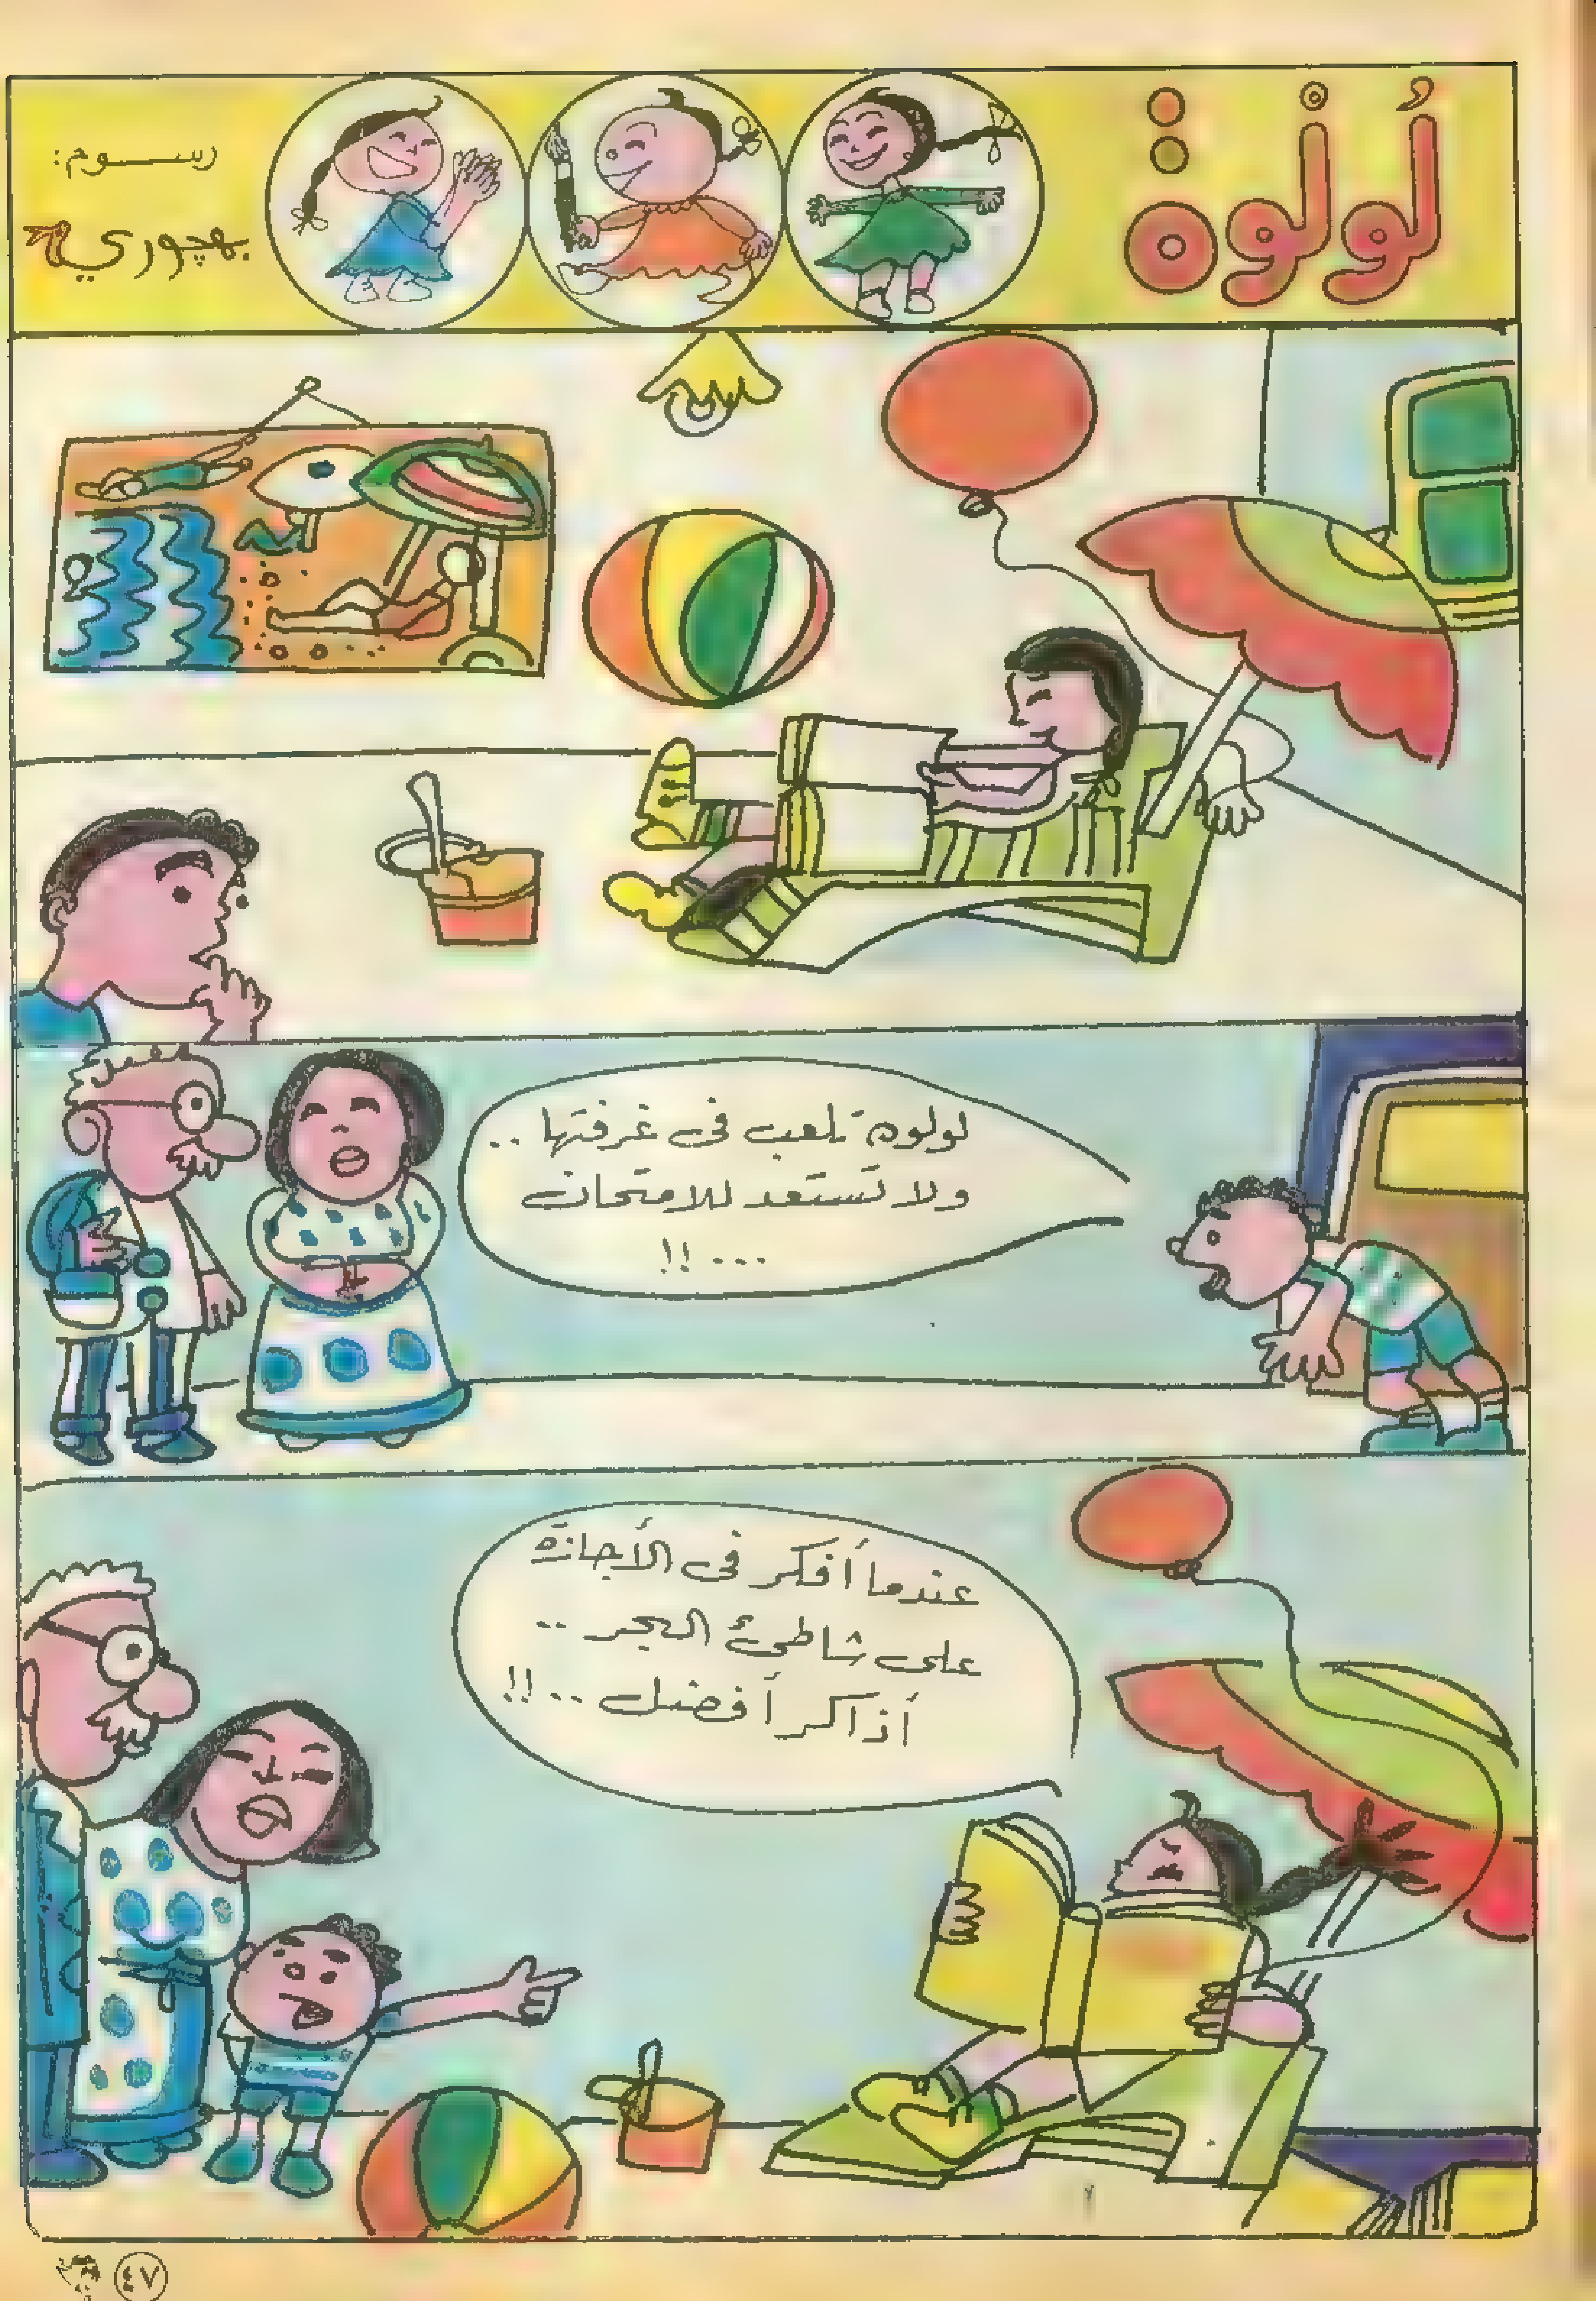 لُولْوة
رسوم:
بهجوري
لولوة تلعب فى غرفتها ..
ولا تستعد للامتحان
...!!
عندما أفكر فى الأجازة
على شاطئ البحر ..
أذاكر أفضل ..!!
٤٧